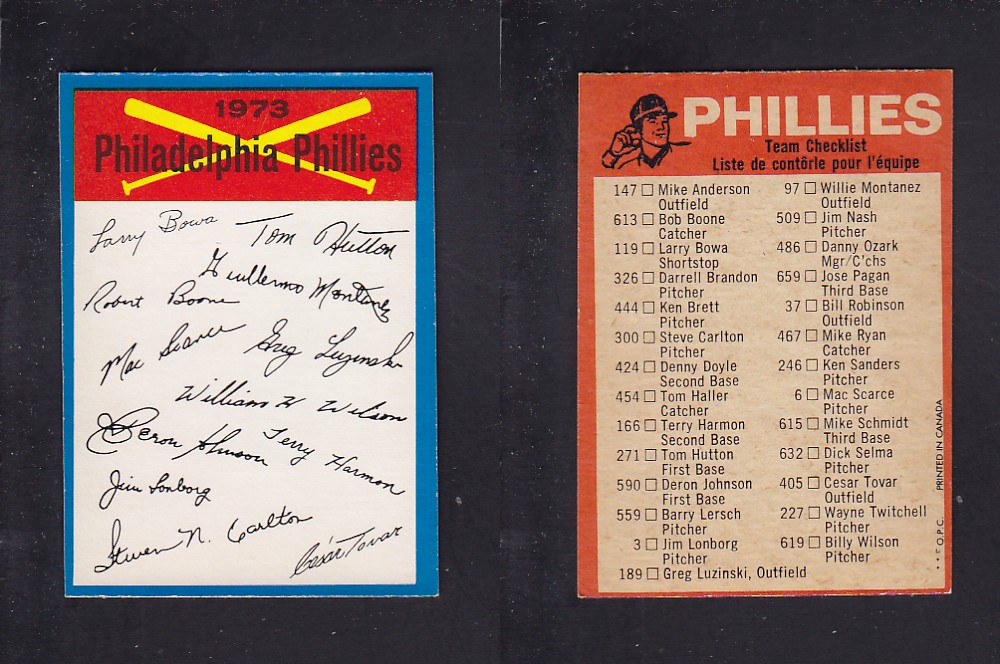 1973
Philadelphia Phillies
Larry Bowa
Tom Hutton
Guillermo Montanez
Robert Boone
Mac Scarce
Greg Luzinski
William H Wilson
Deron Johnson
Terry Harmon
Jim Lonborg
Steven N. Carlton
César Tovar
PHILLIES
Team Checklist
Liste de contôrle pour l'équipe
147 □ Mike Anderson
Outfield
613 □ Bob Boone
Catcher
119 □ Larry Bowa
Shortstop
326 □ Darrell Brandon
Pitcher
444 □ Ken Brett
Pitcher
300 □ Steve Carlton
Pitcher
424 □ Denny Doyle
Second Base
454 □ Tom Haller
Catcher
166 □ Terry Harmon
Second Base
271 □ Tom Hutton
First Base
590 □ Deron Johnson
First Base
559 □ Barry Lersch
Pitcher
3 □ Jim Lonborg
Pitcher
189 □ Greg Luzinski, Outfield
97 □ Willie Montanez
Outfield
509 □ Jim Nash
Pitcher
486 □ Danny Ozark
Mgr/C'chs
659 □ Jose Pagan
Third Base
37 □ Bill Robinson
Outfield
467 □ Mike Ryan
Catcher
246 □ Ken Sanders
Pitcher
6 □ Mac Scarce
Pitcher
615 □ Mike Schmidt
Third Base
632 □ Dick Selma
Pitcher
405 □ Cesar Tovar
Outfield
227 □ Wayne Twitchell
Pitcher
619 □ Billy Wilson
Pitcher
**O.P.C. PRINTED IN CANADA